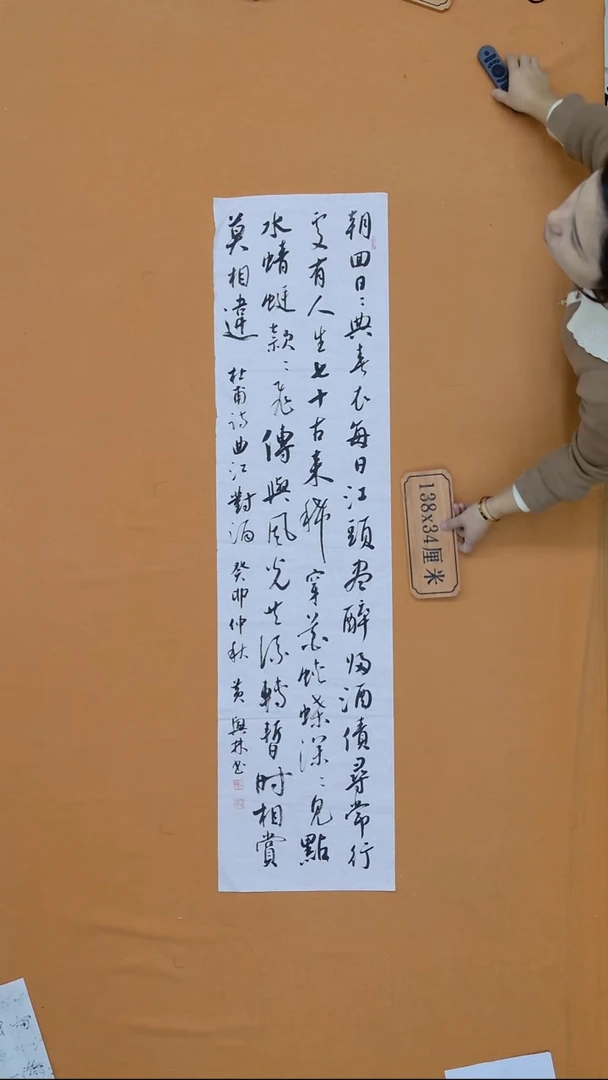 朝回日:典春衣每日江頭盡醉歸酒債尋常行
處有人生七十古來稀穿花蛺蝶深:見點
水蜻蜓款:飛傳與風光共流轉暫時相賞
莫相違
杜甫詩曲江對酒 癸卯仲秋 黃興林書
138x34厘米